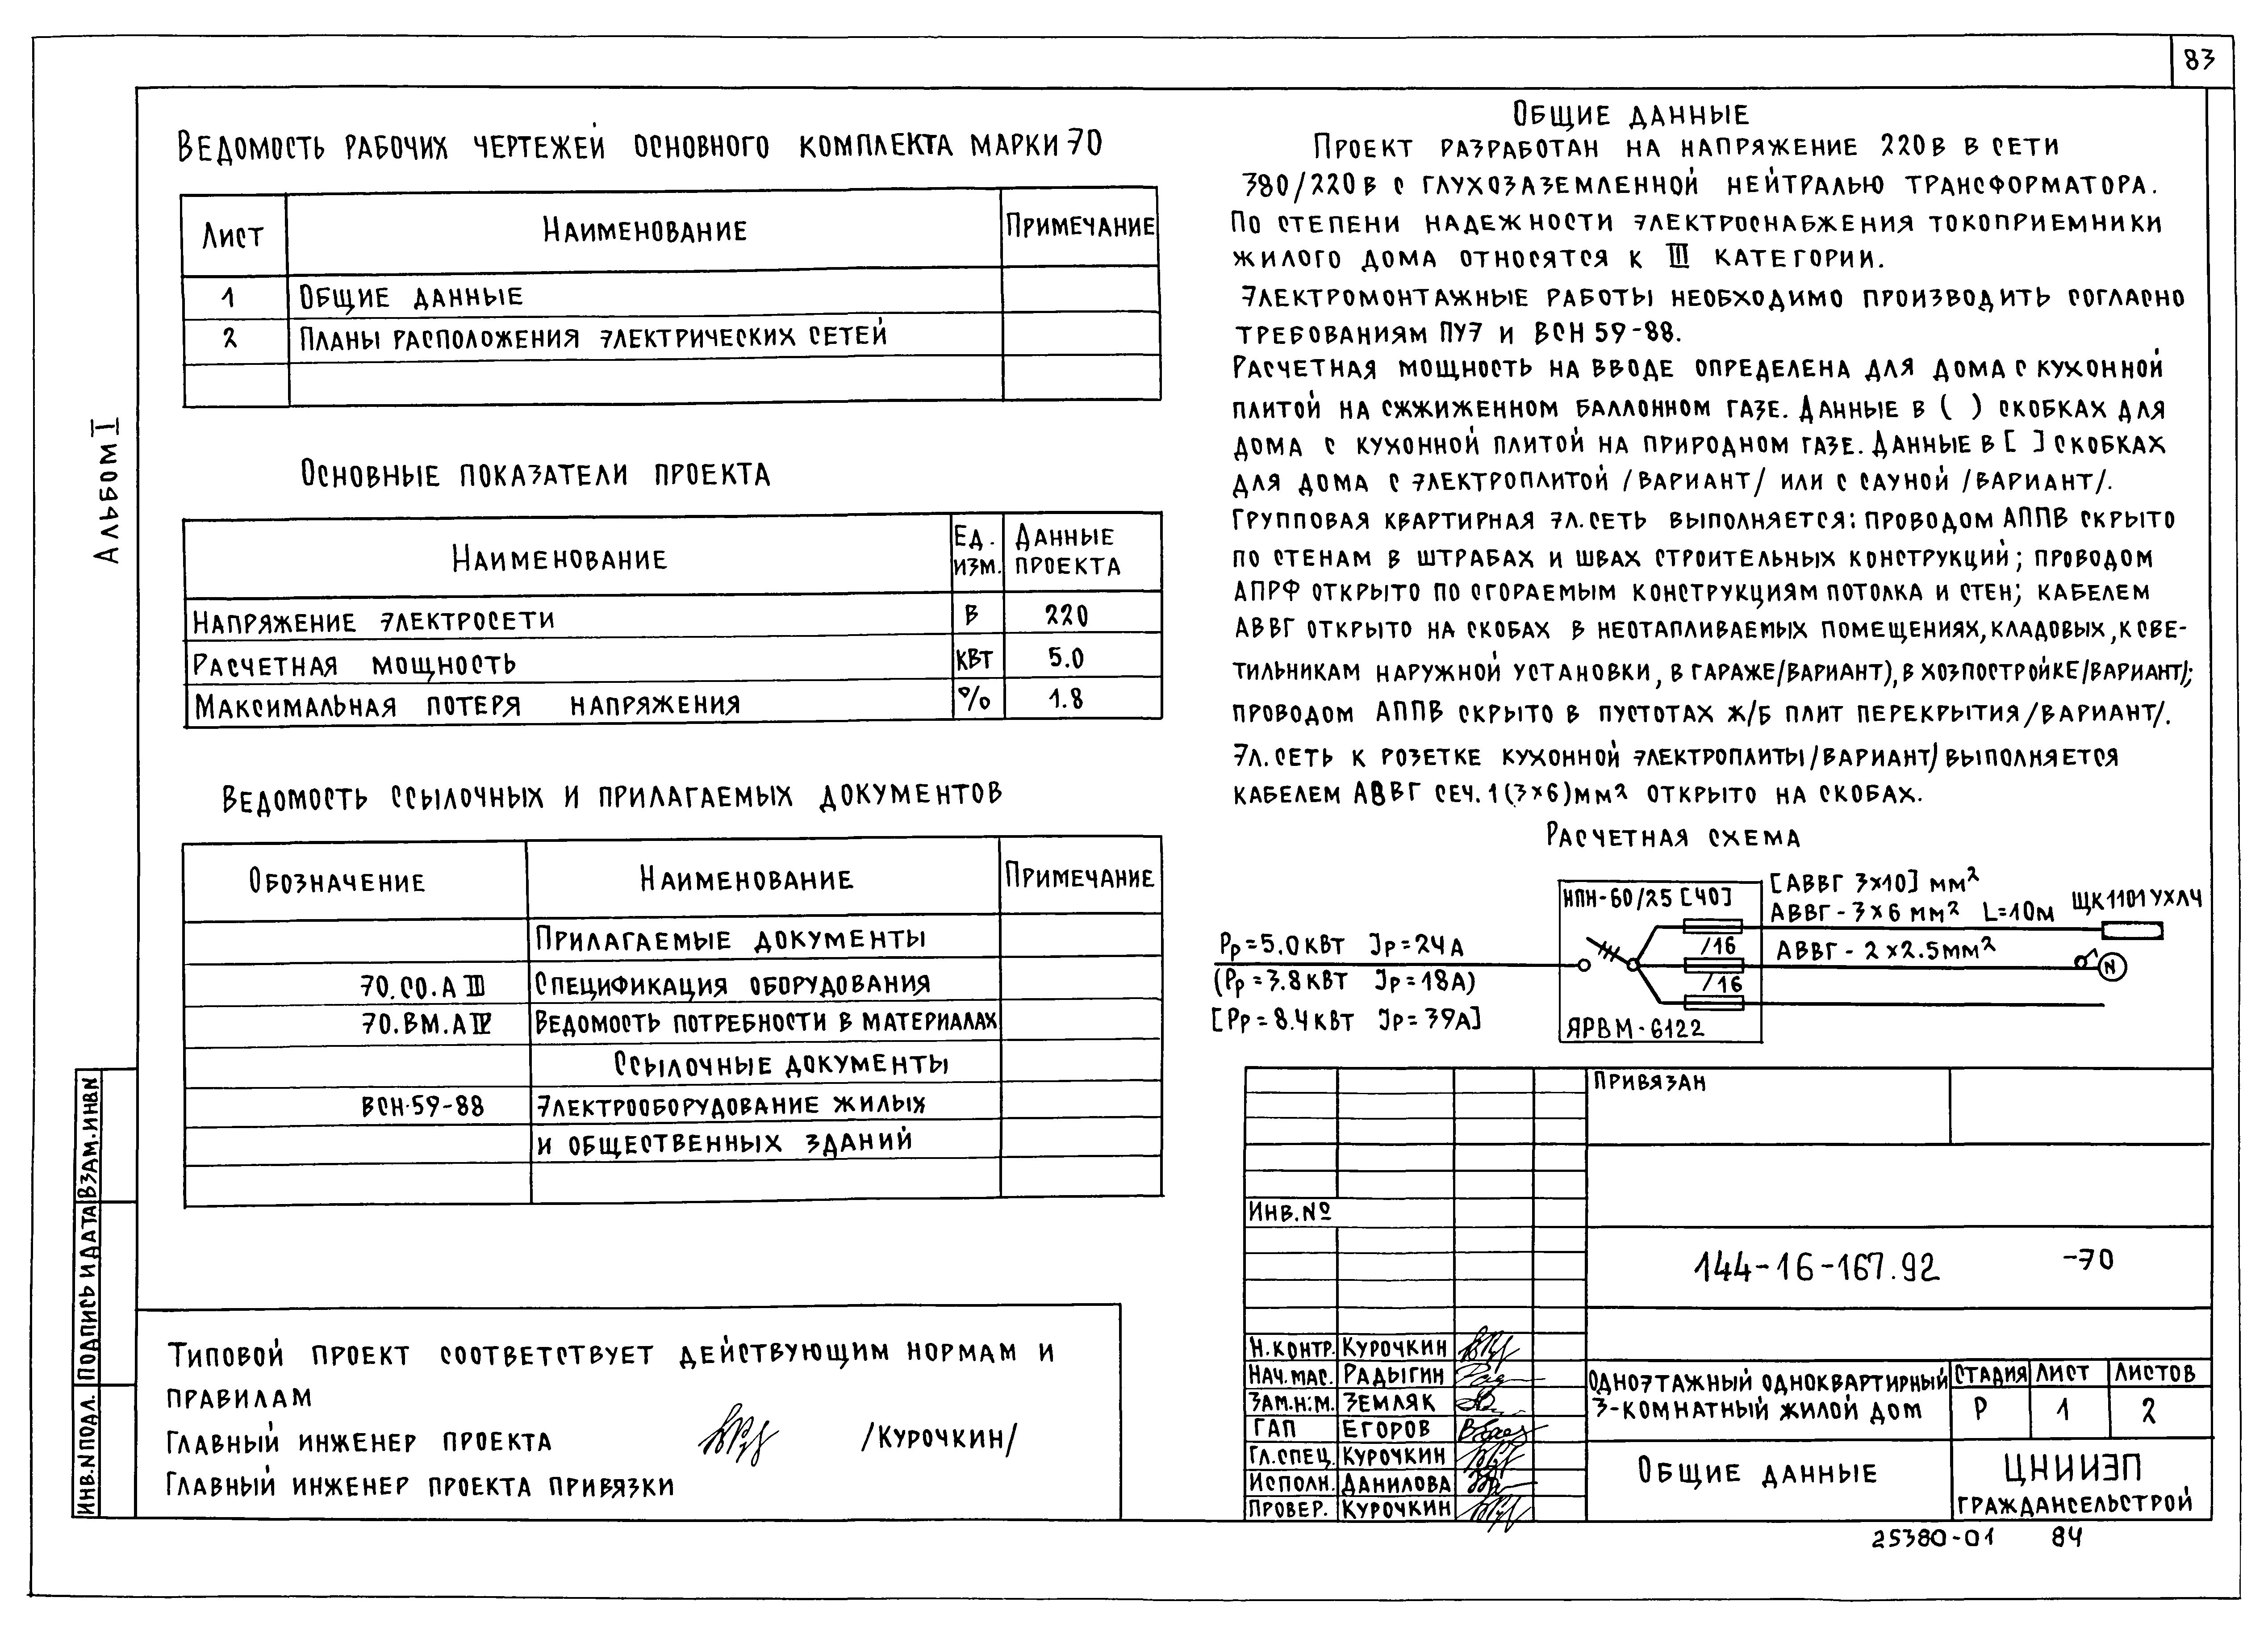 83
Альбом I
Ведомость рабочих чертежей основного комплекта марки ЭО
Лист Наименование Примечание
1 Общие данные
2 Планы расположения электрических сетей
Основные показатели проекта
Наименование Ед. изм. Данные проекта
Напряжение электросети В 220
Расчетная мощность кВт 5.0
Максимальная потеря напряжения % 1.8
Ведомость ссылочных и прилагаемых документов
Обозначение Наименование Примечание
Прилагаемые документы
ЭО.СО.А III Спецификация оборудования
ЭО.ВМ.А IV Ведомость потребности в материалах
Ссылочные документы
ВСН-59-88 Электрооборудование жилых
и общественных зданий
Типовой проект соответствует действующим нормам и
правилам
Главный инженер проекта /Курочкин/
Главный инженер проекта привязки
Инв.N подл. Подпись и дата Взам.инвN
Общие данные
Проект разработан на напряжение 220В в сети
380/220В с глухозаземленной нейтралью трансформатора.
По степени надежности электроснабжения токоприемники
жилого дома относятся к III категории.
Электромонтажные работы необходимо производить согласно
требованиям ПУЭ и ВСН 59-88.
Расчетная мощность на вводе определена для дома с кухонной
плитой на сжжиженном баллонном газе. Данные в ( ) скобках для
дома с кухонной плитой на природном газе. Данные в [ ] скобках
для дома с электроплитой /вариант/ или с сауной /вариант/.
Групповая квартирная эл.сеть выполняется: проводом АППВ скрыто
по стенам в штрабах и швах строительных конструкций; проводом
АПРФ открыто по сгораемым конструкциям потолка и стен; кабелем
АВВГ открыто на скобах в неотапливаемых помещениях, кладовых, к све-
тильникам наружной установки, в гараже/вариант), в хозпостройке/вариант/;
проводом АППВ скрыто в пустотах ж/б плит перекрытия/вариант/.
Эл.сеть к розетке кухонной электроплиты/вариант/ выполняется
кабелем АВВГ сеч.1(3×6)мм2 открыто на скобах.
Расчетная схема
НПН-60/25 [40]
[АВВГ 3×10] мм2
АВВГ-3×6 мм2 L=10м ЩК1101УХЛ4
Рр=5.0кВт Jр=24А /16 АВВГ-2×2.5мм2 N
(Рр=3.8кВт Jр=18А) /16
[Рр=8.4кВт Jр=39А]
ЯРВМ-6122
Привязан
Инв.№
144-16-167.92 -ЭО
Н.контр. Курочкин
Нач.мас. Радыгин
Зам.н.м. Земляк
ГАП Егоров
Гл.спец. Курочкин
Исполн. Данилова
Провер. Курочкин
Одноэтажный одноквартирный
3-комнатный жилой дом
Стадия Лист Листов
Р 1 2
Общие данные
ЦНИИЭП
граждансельстрой
25380-01 84